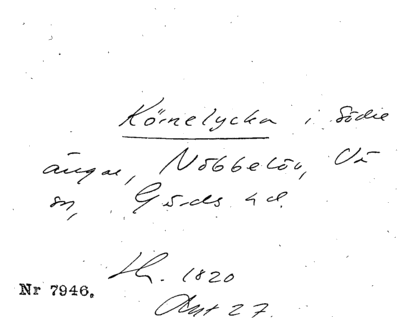 Körnelycka i Södre
ängar, Nöbbelöv, Vå
sn, Gärds hd.
Nr 7946.
1820
Akt 27.